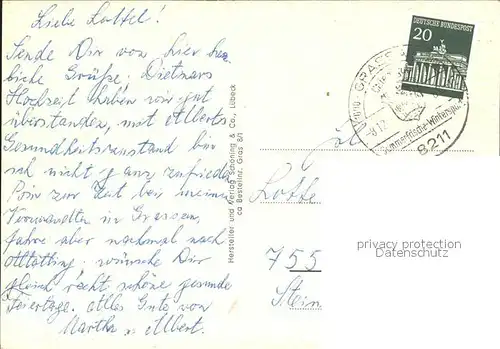 Liebe Lottel!
Sende Dir von hier herz
liche Grüße; Dietmars
Hochzeit haben wir gut
überstanden, mit Alberts
Gesundheitszustand bin
ich nicht ganz zufrieden
Bin zur Zeit bei meinen
Verwandten in Grassau,
fahre aber nochmal nach
Altötting. wünsche Dir
gleich recht schöne gesunde
Feiertage. Alles Gute von
Martha u. Albert.
Hersteller und Verlag Schöning & Co., Lübeck
Bestellnr. Gras 8/1
DEUTSCHE BUNDESPOST
20
GRASSAU
Sommerfrische-Wintersport
8211
Lotte
755
privacy protection
Datenschutz